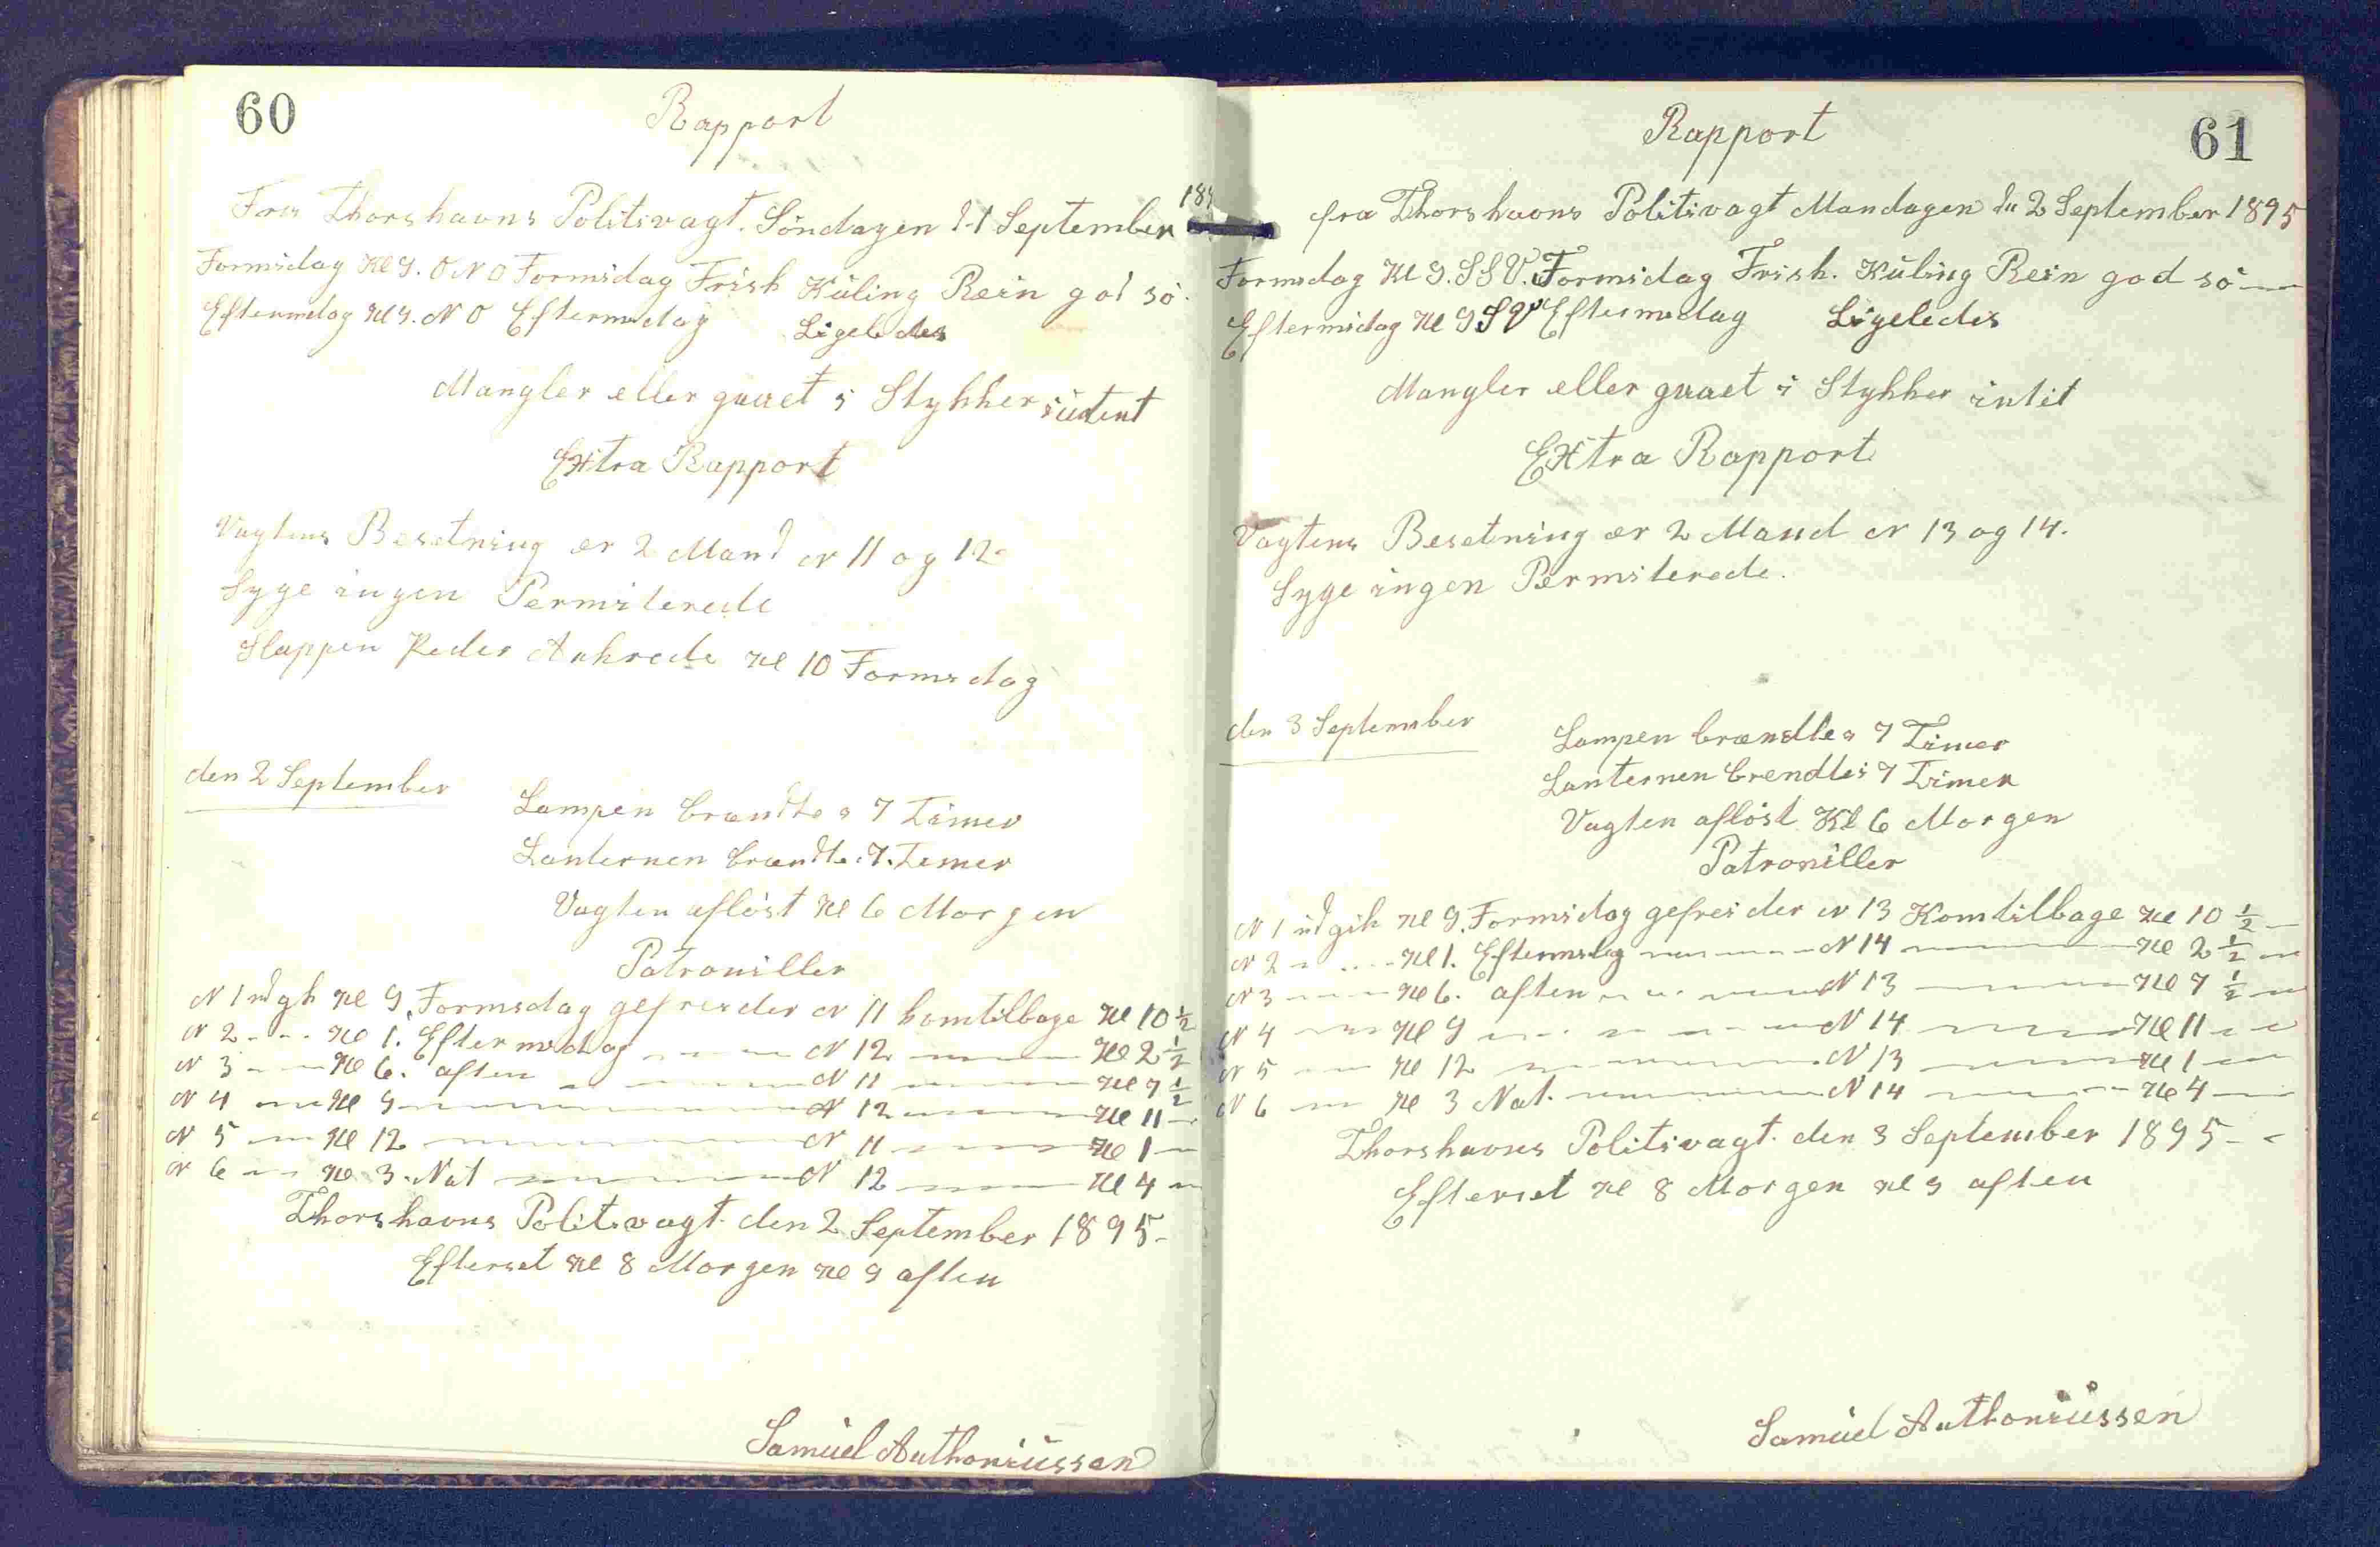 60
Rapport
Fra Thorshavns Politivagt. Söndagen d 1 September 189
Formidag Kl 9. O N O Formidag Frish Küling Rein god sö.
Eftermidag Kl 9. N O Eftermidag Ligeledes
Mangler eller gaaet i Stykker
Extra Rapport
Vagtens Besetning er 2 Mand N 11 og 12
Syge ingen Permiterede
Slappen Peder Ankrede Kl 10 Formidag
den 2 September
Lampen brændte i 7 Timer
Lanternen brændte i 7 Timer
Vagten aflöst Kl 6 Morgen
Patrouiller
N 1 udgik Kl 9. Formidag gefreider N 11 komtilbage Kl 10 ½
N 2 - - - Kl 1. Eftermidag - - - N 12 - - - Kl 2 ½
N 3 - - - Kl 6. aften - - - N 11 - - - Kl 7 ½
N 4 - - - Kl 9 - - - N 12 - - - Kl 11 -
N 5 - - - Kl 12 - - - N 11 - - - Kl 1 -
N 6 - - - Kl 3. Nat - - - N 12 - - - Kl 4 -
Thorshavns Politivagt. den 2 September 1895-
Efterset Kl 8 Morgen Kl 9 aften
Samüel Anthoniüssen
Rapport
61
fra Thorshavns Politivagt Mandagen dn 2 September 1895
Formidag Kl 9. S S V. Formidag Frish. Küling Rein god sö -
Eftermidag Kl 9 S V Eftermidag Ligeledes
Mangler eller gaaet i Stykker intet
Extra Rapport
Vagtens Besetning er 2 Mand N 13 og 14.
Syge ingen Permiterede.
den 3 September
Lampen brændte i 7 Timer
Lanternen brendte i 7 Timer
Vagten aflöst Kl 6 Morgen
Patrouiller
N 1 udgik Kl 9. Formidag gefreider N 13 Komtilbage Kl 10 ½ -
N 2 - - - Kl 1. Eftermidag - - - N 14 - - - Kl 2 ½ -
N 3 - - - Kl 6. aften - - - N 13 - - - Kl 7 ½ -
N 4 - - - Kl 9 - - - N 14 - - - Kl 11 - -
N 5 - - - Kl 12 - - - N 13 - - - Kl 1 -
N 6 - - - Kl 3 Nat. - - - N 14 - - - Kl 4 -
Thorshavns Politivagt. den 3 September 1895 - -
Efterset Kl 8 Morgen Kl 9 aften
Samüel Anthoniüssen